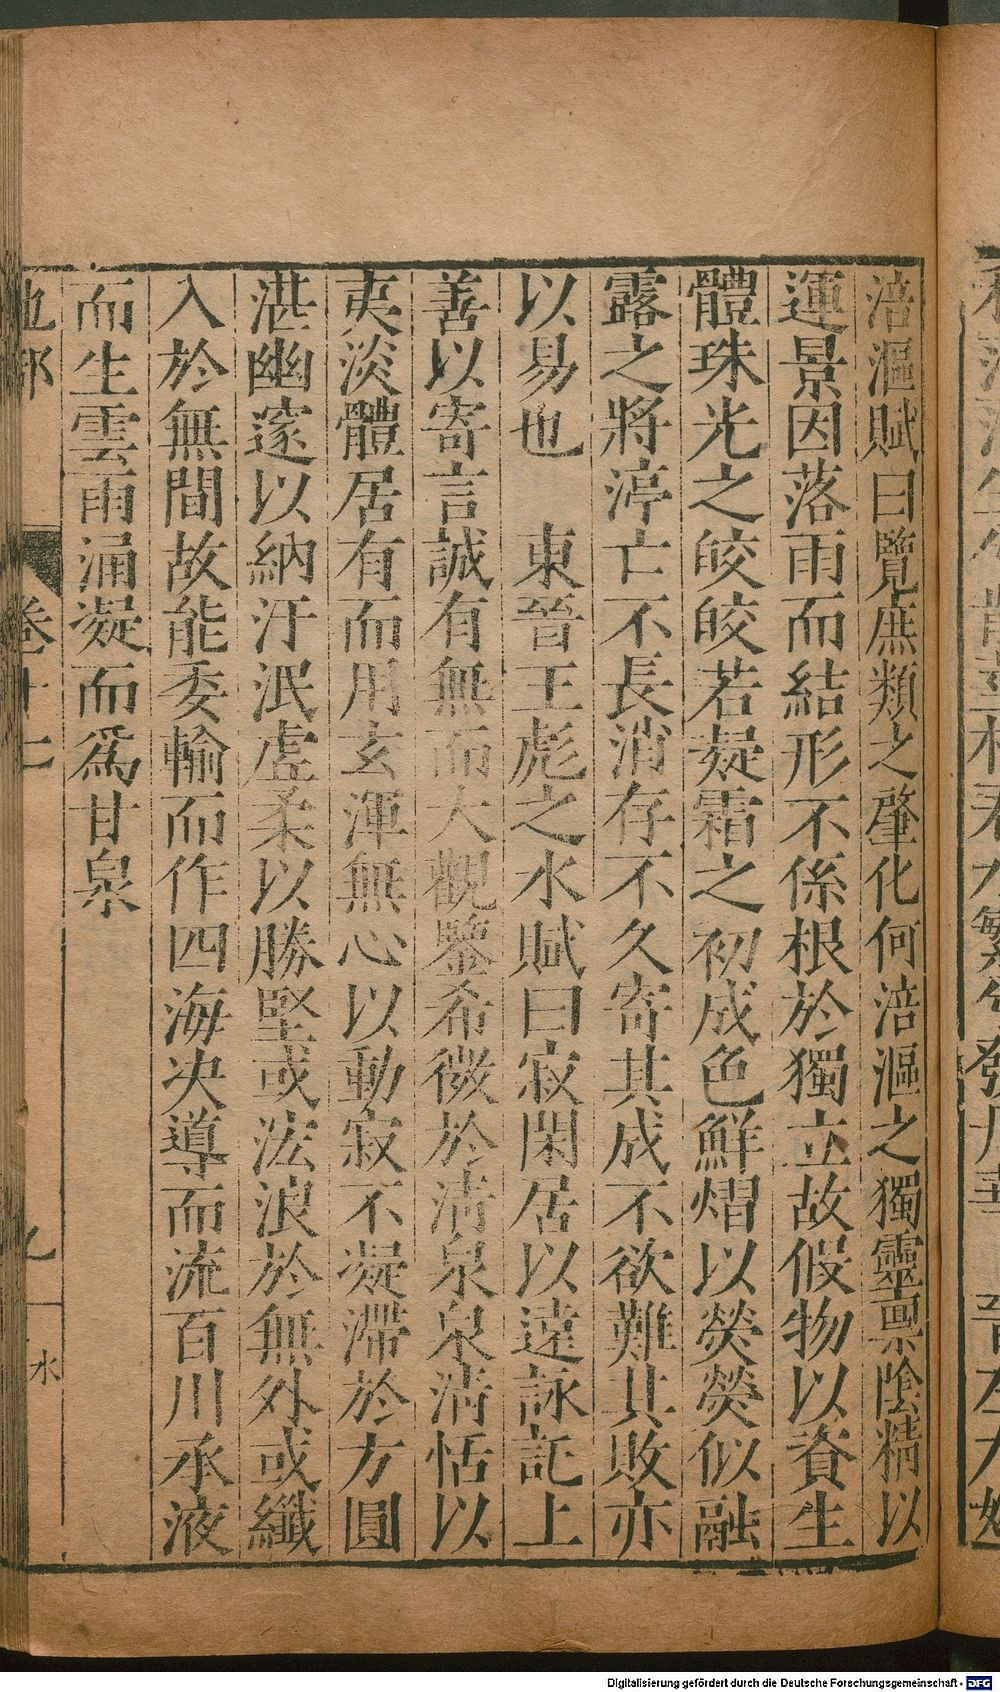 涪漚賦曰覽庶類之肇化何涪漚之獨靈禀陰精以
運景因落雨而結形不係根於獨立故假物以資生
體珠光之皎皎若凝霜之初成色鮮熠以熒熒似融
露之將渟亡不長消存不久寄其成不欲難其敗亦
以易也　東晉王彪之水賦曰寂閑居以遠詠託上
善以寄言誠有無而大觀鑒希微於清泉泉清恬以
夷淡體居有而用玄渾無心以動寂不凝滯於方圓
湛幽邃以納汙泯虛柔以勝堅或浤浪於無外或纖
入於無間故能委輸而作四海决導而流百川承液
而生雲雨涌凝而爲甘泉
地部 卷十七 九 水
Digitalisierung gefördert durch die Deutsche Forschungsgemeinschaft - DFG